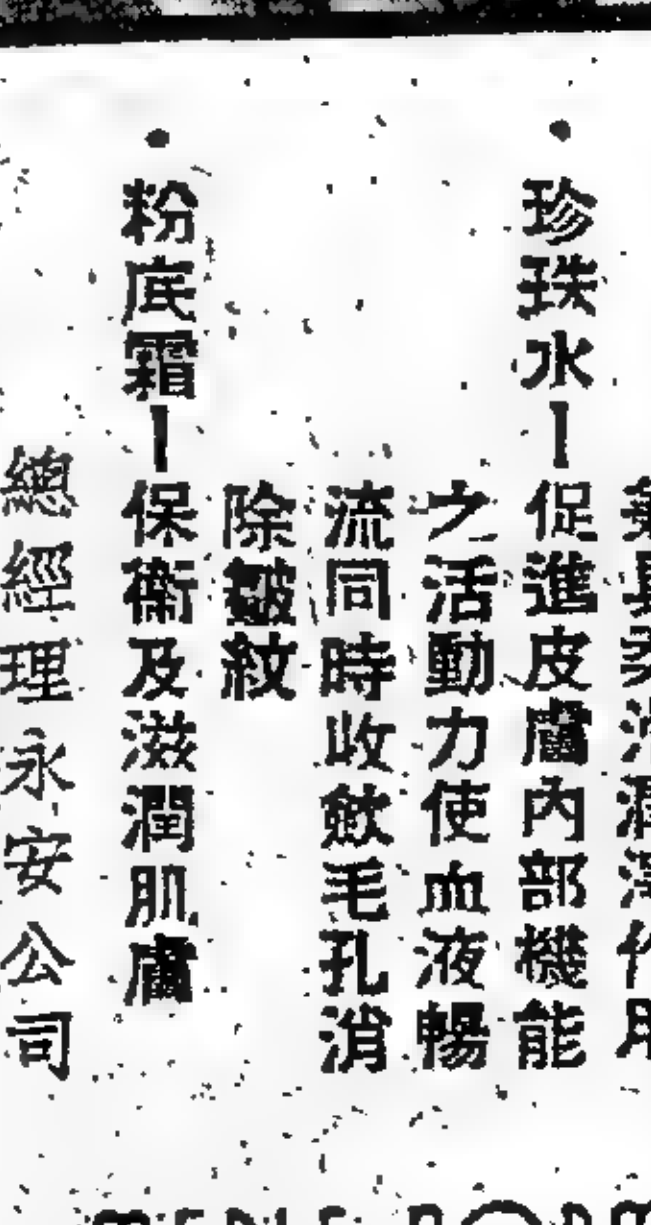 珍珠水—促進皮膚內部機能
之活動力使血液暢
流同時收歛毛孔消
除皺紋
粉底霜—保衞及滋潤肌膚
總經理永安公司